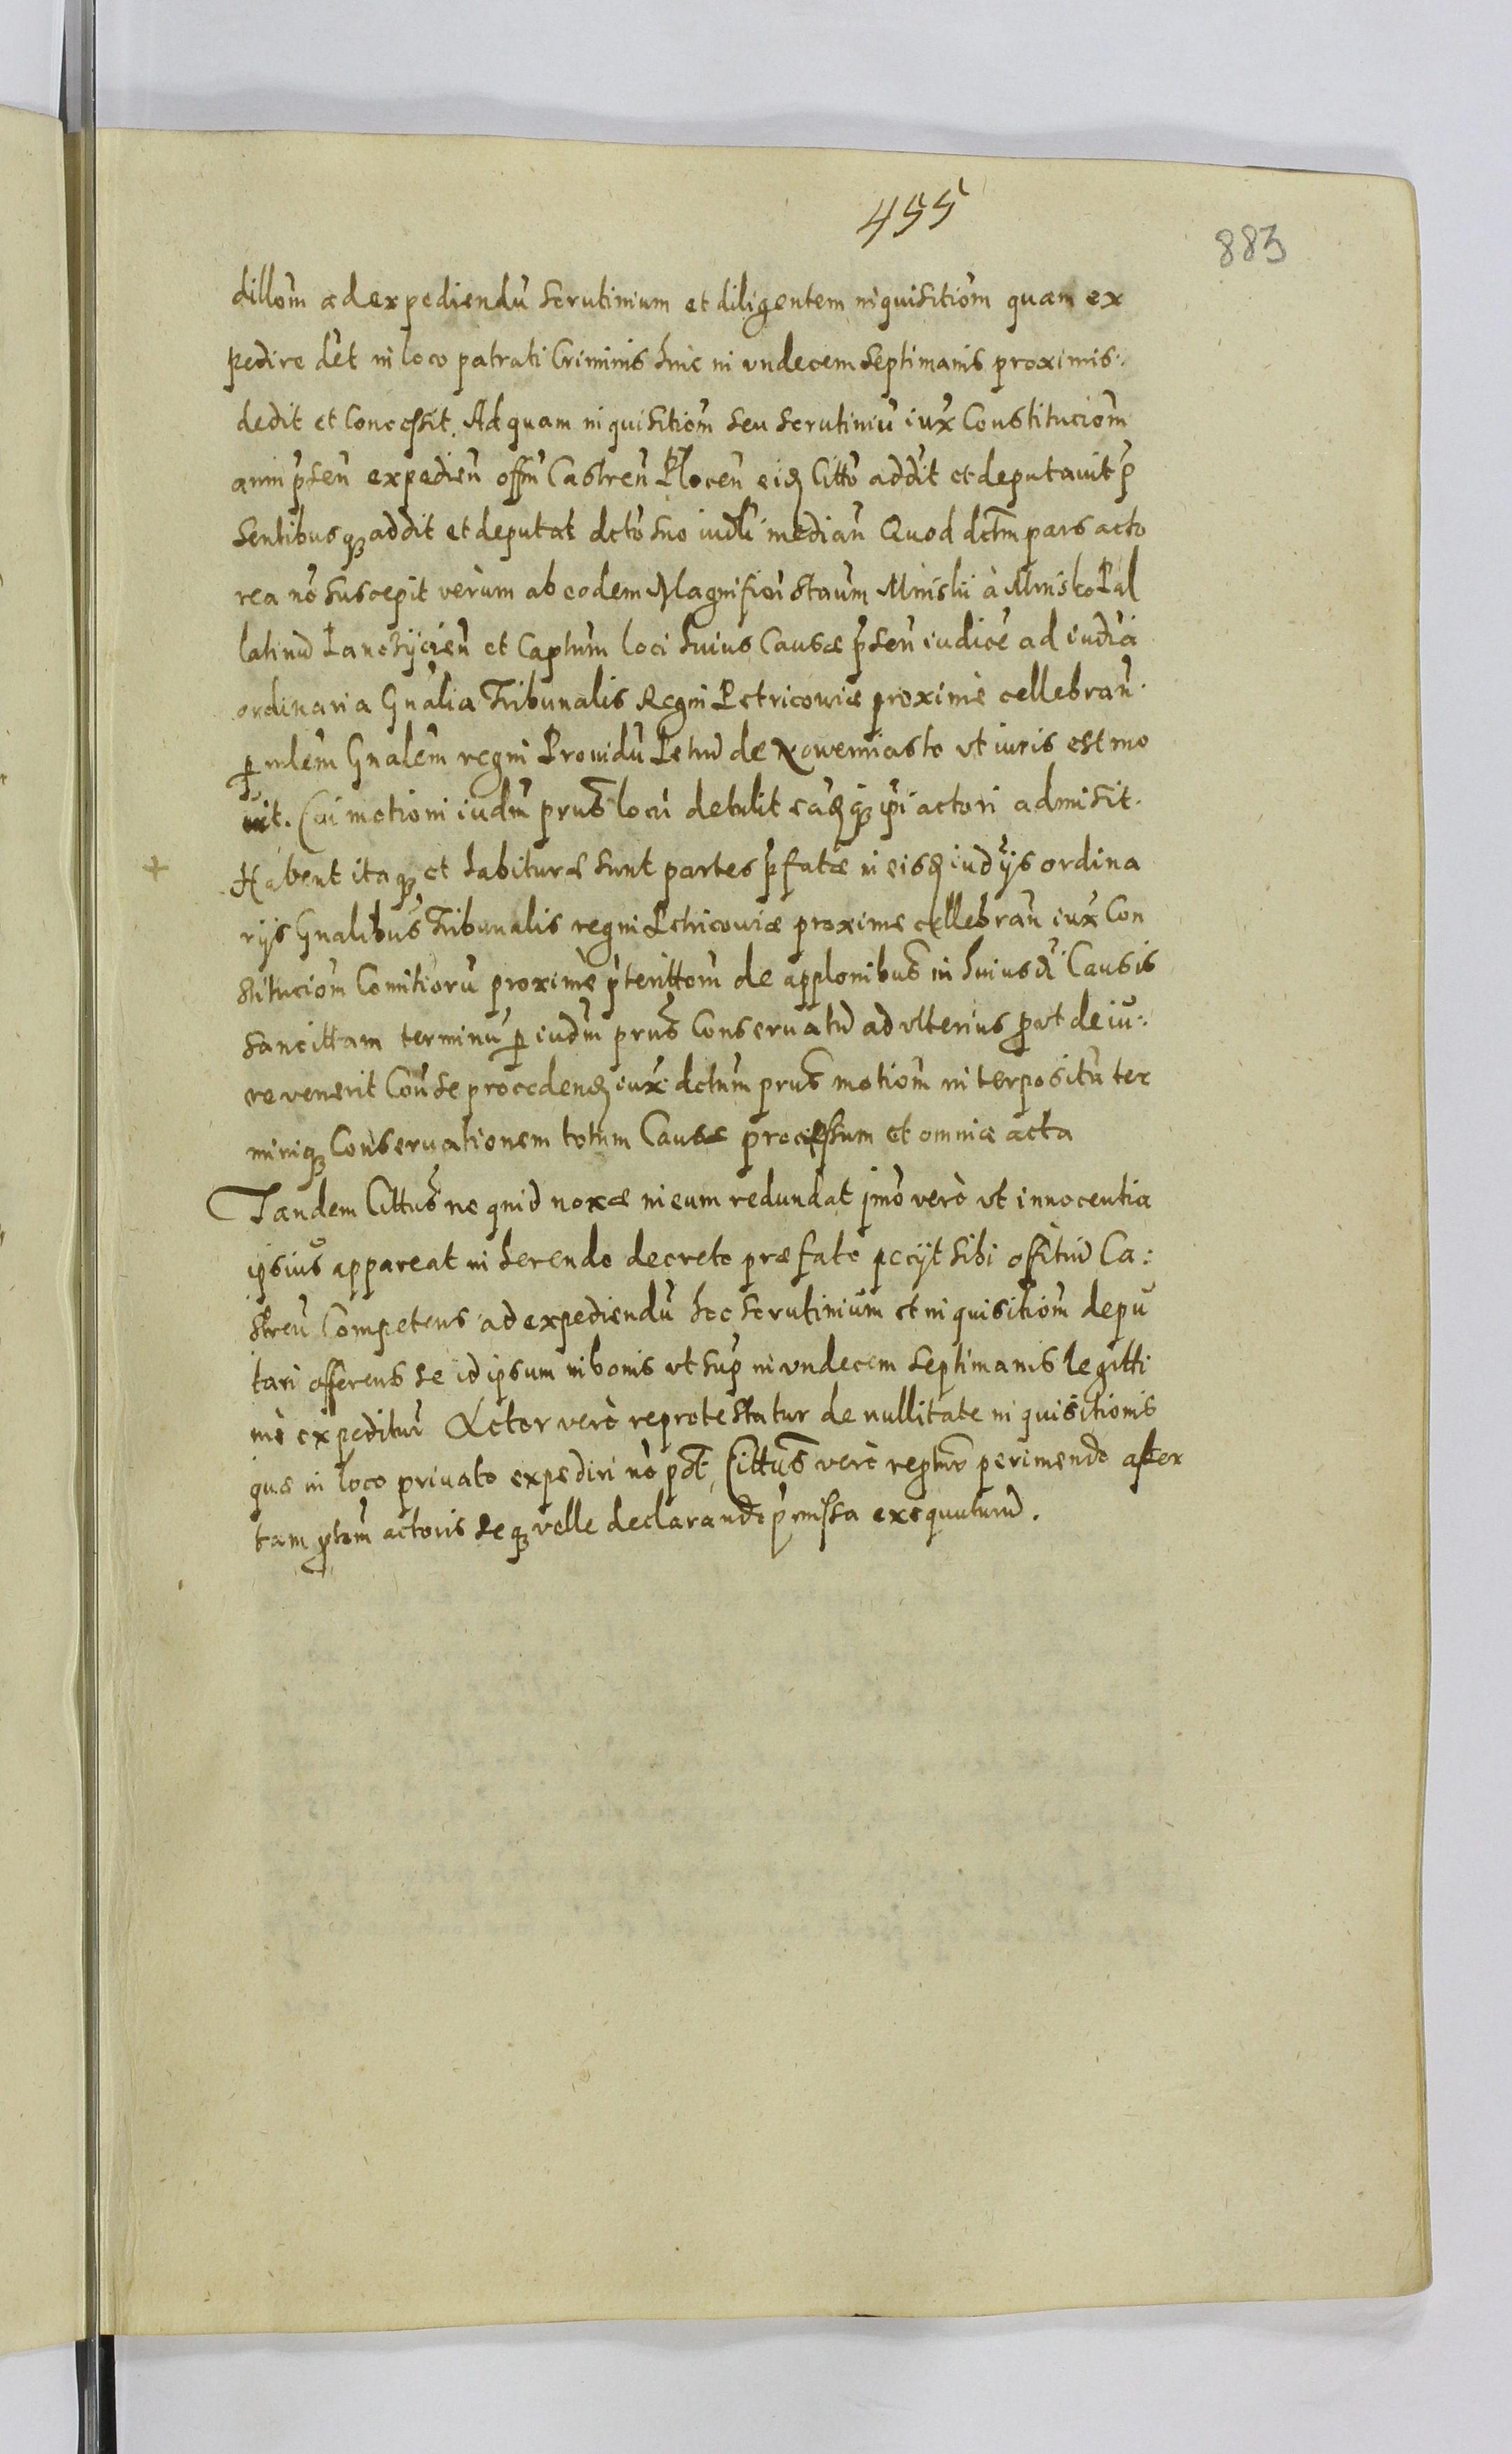 455
883
dillom̃ ad expediendũ scrutinium et diligentem inquisitiom̃ quam ex
pedire d̃et in loco patrati Criminis hinc in vndecem septimanis proximis.
dedit et Concessit. Ad quam inquisitiom̃ seu scrutiniũ iux̃ Constituciom̃
anni p̃sen̄ expedien̄ offm̃ Castren̄ Plocen̄ eid Citto addit et deputauit p̃
sentibusq addit et deputat dcto suo iudli median̄ Quod dctm̃ pars acto
rea nõ suscepit verùm ab eodem Magnifici Stanm̃ Minskii à Minsko Pal
latinũ Lancẏcien̄ et Captum̃ loci huius Causæ p̃sen̄ iudicẽ ad iudia
ordinaria Gñalia Tribunalis Regni Petricouiæ proximè cellebran̄
p mlem̃ Gnalem̃ regni Prouidũ Petrũ de Nowemiasto vt iuris est mo
uit. Cui motioni iudm̃ prñs locũ detulit eandq ipsi actori admisit.
+
Habent itaq et habituræ sunt partes p̃fatæ in eisd iudijs ordina
rijs Gnalibus Tribunalis regni Petricouiæ proxime cellebran̄ iux̃ Con
stituciom̃ Comitiorũ proximè p̃terittom̃ de applonibus in huiusdi Causis
sancittam terminũ p iudm̃ prñs Conseruatũ ad vlterius prout de iu:
re venerit Coñse procedend iux̃ dctum prñs motiom̃ interpositũ ter
miniq Conseruationem totum Causæ processum et omnia acta
Tandem Cittus ne quid noxæ in eum redundat imò verò vt innocentia
ipsius appareat inherendo decreto præfato pecijt sibi offitiũ Ca:
stren̄ Competens ad expediendũ hoc scrutinium et inquisitiom̃ depu
tari offerens se id ipsum in bonis vt sup̃ in vndecem septimanis legitti
mè expeditur Actor verò reprotestatur de nullitate inquisitionis
quæ in loco priuato expediri nõ pot, Cittus verò reptur perimendo asser
tam ptom̃ actoris seq velle declarando p̃missa exequuturũ.